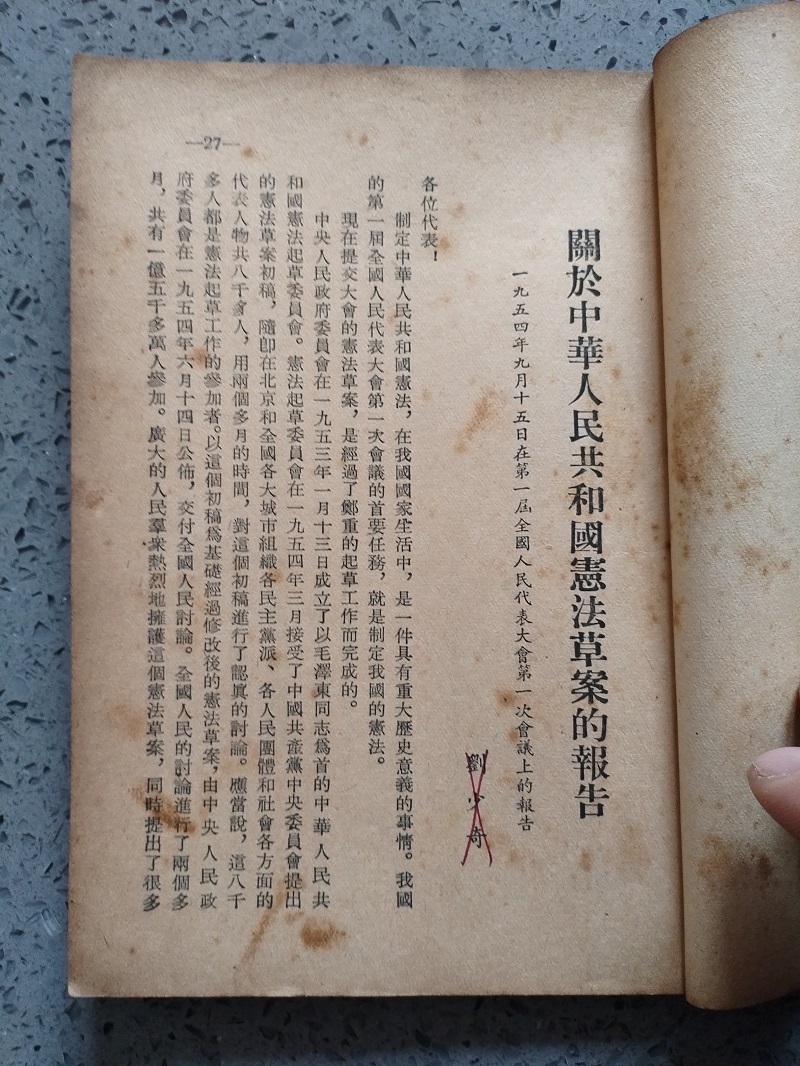 關於中華人民共和國憲法草案的報告
一九五四年九月十五日在第一屆全國人民代表大會第一次會議上的報告
劉少奇
各位代表！
制定中華人民共和國憲法，在我國國家生活中，是一件具有重大歷史意義的事情。我國
的第一屆全國人民代表大會第一次會議的首要任務，就是制定我國的憲法。
現在提交大會的憲法草案，是經過了鄭重的起草工作而完成的。
中央人民政府委員會在一九五三年一月十三日成立了以毛澤東同志爲首的中華人民共
和國憲法起草委員會。憲法起草委員會在一九五四年三月接受了中國共產黨中央委員會提出
的憲法草案初稿，隨卽在北京和全國各大城市組織各民主黨派、各人民團體和社會各方面的
代表人物共八千多人，用兩個多月的時間，對這個初稿進行了認眞的討論。應當說，這八千
多人都是憲法起草工作的參加者。以這個初稿爲基礎經過修改後的憲法草案，由中央人民政
府委員會在一九五四年六月十四日公佈，交付全國人民討論。全國人民的討論進行了兩個多
月，共有一億五千多萬人參加。廣大的人民羣衆熱烈地擁護這個憲法草案，同時提出了很多
—27—